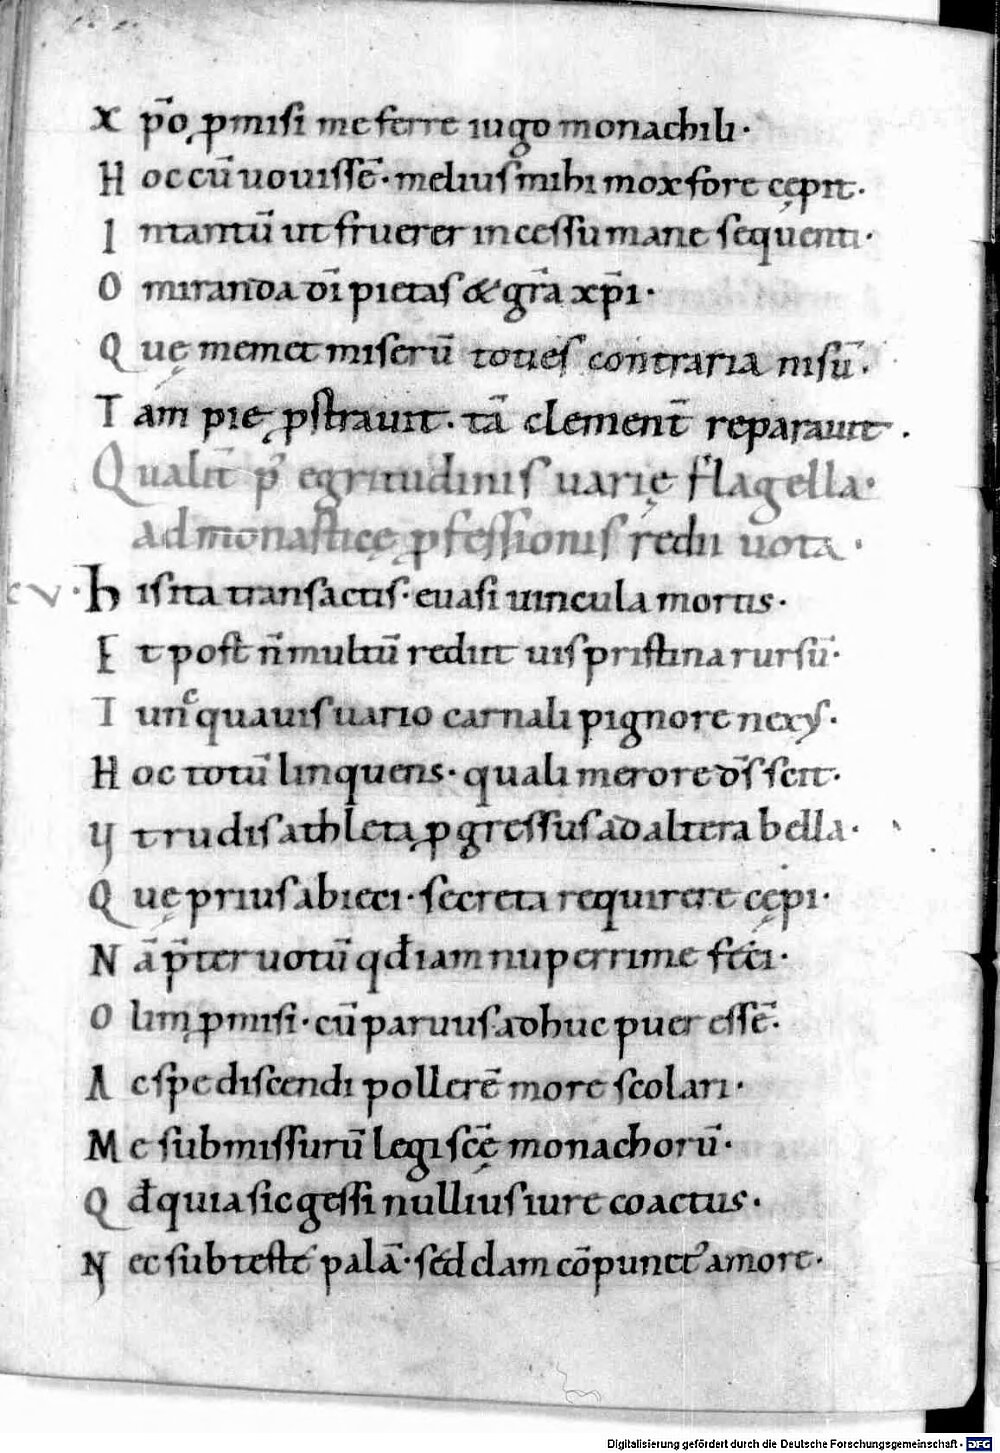 X p̄o ꝓmisi me ferre iugo monachili·
H oc cū uouissē· melius mihi mox fore cępit·
I ntantū ut fruerer incessu mane sequenti·
O miranda dī pietas & grā xp̄i·
Q uę memet miserū toties contraria nisū·
T am pie ꝓstrauit· tā clement̄ reparauit·
Qualit̄ p̄ egritudinis uarię flagella·
ad monasticę ꝓfessionis redii uota·
cv· h is ita transactis· euasi uincula mortis·
E t post n̄ multū rediit uis pristina rursū·
T unc quauis uario carnali pignore nexus·
H oc totū linquens· quali merore d̄s scit·
U t rudis athleta ꝓgressus ad altera bella·
Q uę prius abieci· secreta requirere cępi·
N ā p̄ter uotū qđ iam nuperrime feci·
O lim ꝓmisi· cū paruus adhuc puer essē·
A c spe discendi pollerē more scolari·
M e submissurū legi scē monachorū·
Q đ quia sic gessi nullius iure coactus·
N ec sub teste palā· sed clam cōpunct᾽ amore·
Digitalisierung gefördert durch die Deutsche Forschungsgemeinschaft - DFG